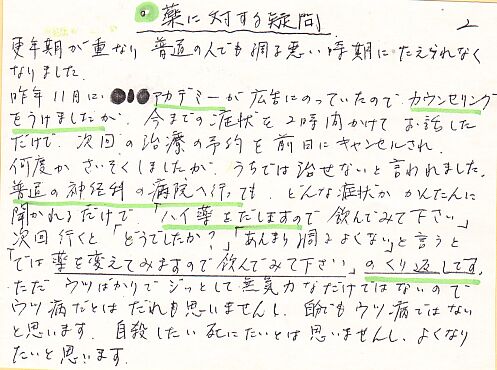 薬に対する疑問
2
更年期が重なり 普通の人でも調子悪い時期に たえられなく
なりました。
昨年11月に アカデミーが広告にのっていたので カウンセリング
をうけましたが、今までの症状を2時間かけてお話した
だけで、次回の治療の予約を前日にキャンセルされ、
何度かさいそくしましたが、うちでは治せないと言われました。
普通の神経科の病院へ行っても、どんな症状か かんたんに
聞かれるだけで、「ハイ薬をだしますので飲んでみて下さい」
次回行くと「どうでしたか?」「あんまり調子よくないと言うと
「では薬を変えてみますので飲んでみて下さい」のくり返しです。
ただ ウツばかりでジッとして無気力なだけではないので
ウツ病だとはだれも思いませんし、自分でもウツ病ではない
と思います。自殺したい死にたいとは思いませんし、よくなり
たいと思います。